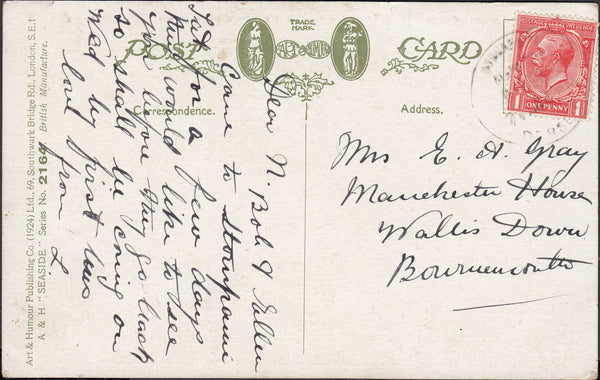 POST CARD
TRADE
MARK
Correspondence.
Address.
Art & Humour Publishing Co. (1924) Ltd., 69, Southwark Bridge Rd., London, S.E.1
A & H "SEASIDE" Series No. 2164 British Manufacture.
POSTAGE REVENUE
1 ONE PENNY 1
DORSET
Dear N. Bob &
came to
Sat for a few days
they would like to see
you before they go back
so shall be coming on
Wed by first bus
love from
L
Mrs E. A. Gray
Manchester House
Wallis Down
Bournemouth